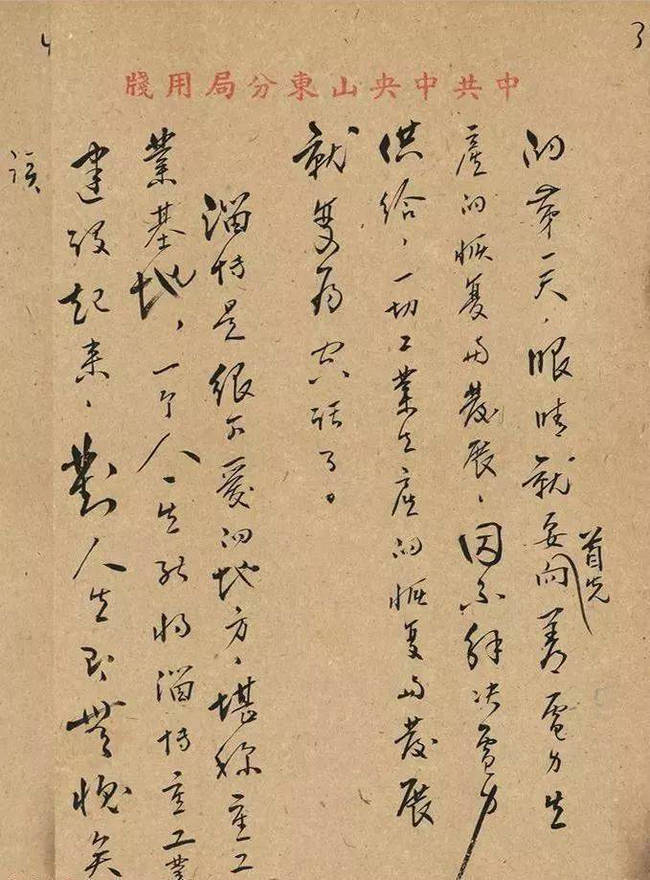 3
中共中央山東分局用牋
首先
的第一天，眼睛就要向着電力生
產的恢復與發展，因不解決電力
供給，一切工業生產的恢復與發展
就變為空話了。
淄博是很可愛的地方，堪称重工
業基地，一个人一生能將淄博重工業
建設起來，對人生即無愧矣
4